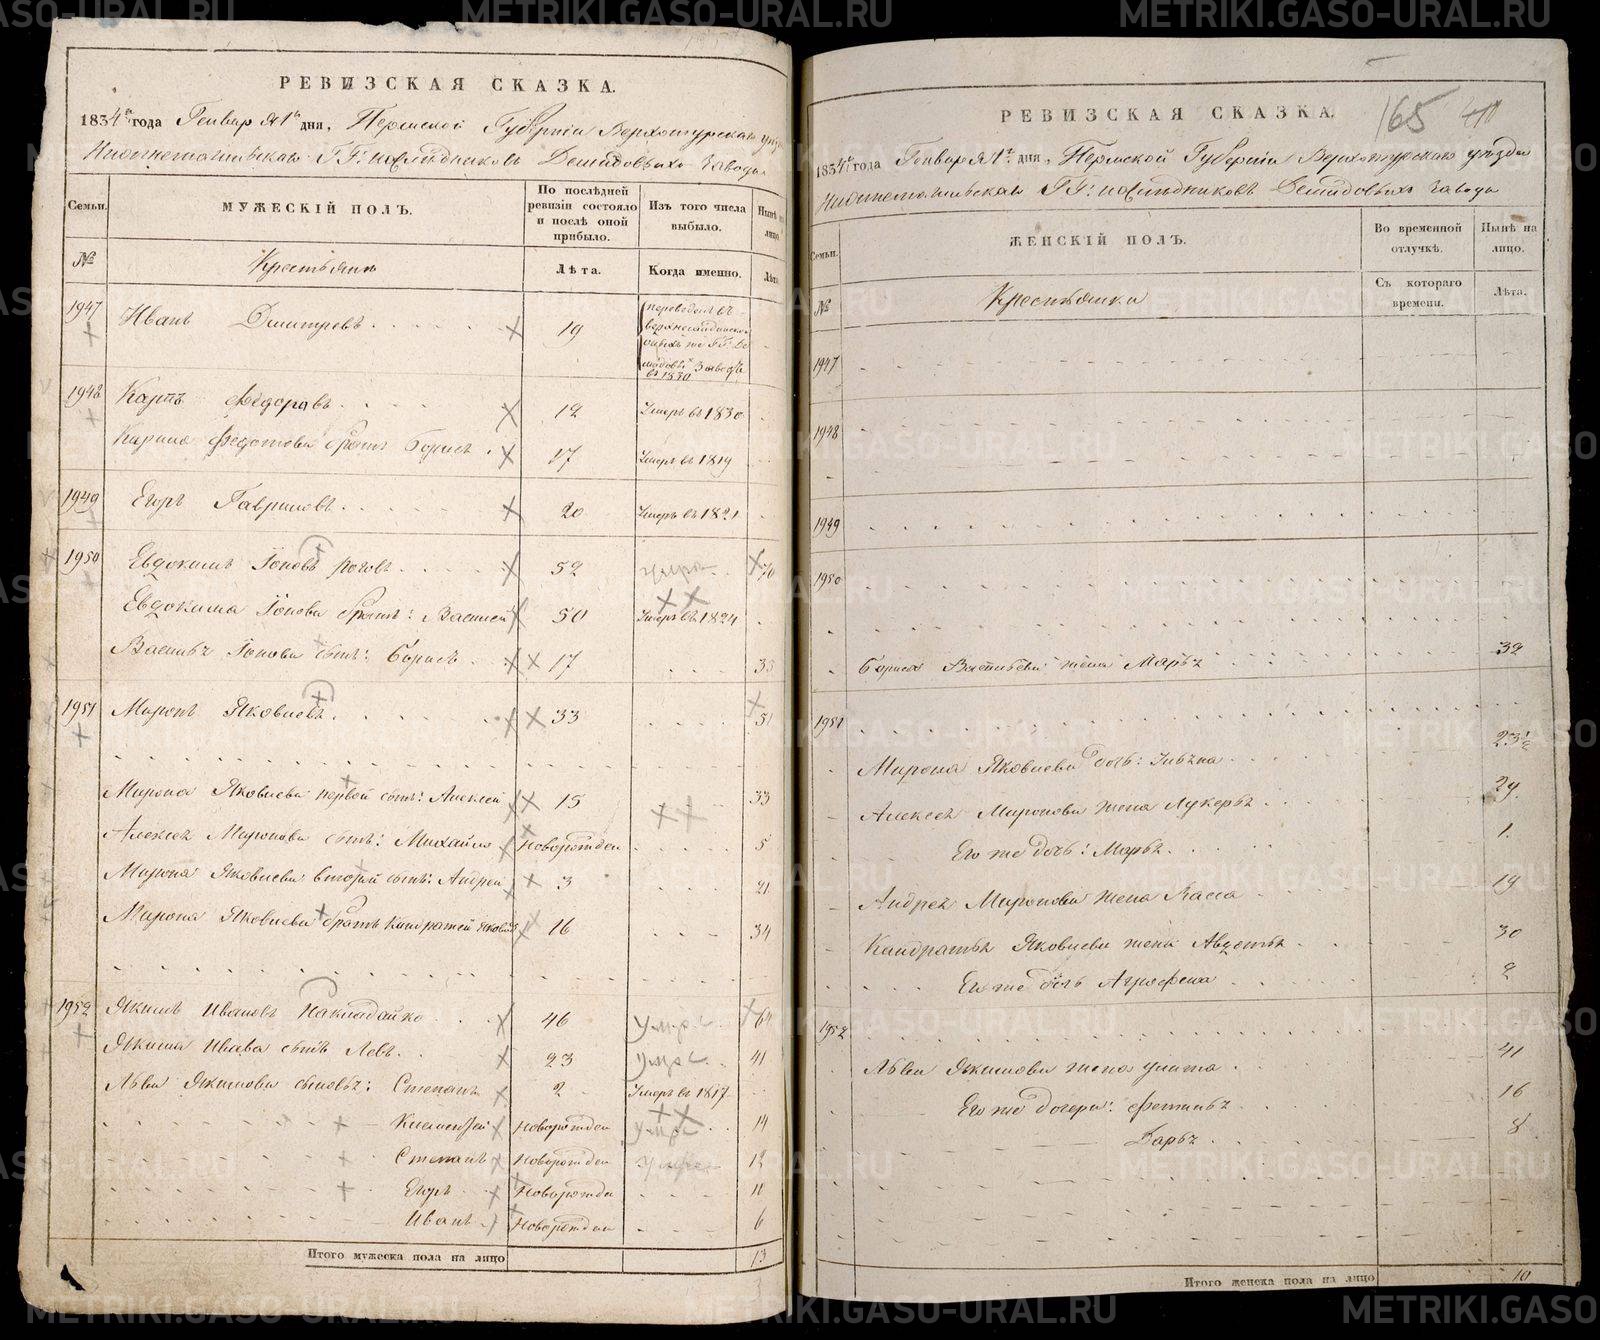 РЕВИЗСКАЯ СКАЗКА.
1834го года Генваря 1го дня, Пермской Губернiи Верхотурскаго уезда
Нижнетагильскаго ГГ: наследниковъ Демидовыхъ Завода
Семьи.
МУЖЕСКIЙ ПОЛЪ.
По послѣдней ревизiи состояло и послѣ оной прибыло.
Изъ того числа выбыло.
Нынѣ на лицо.
№
Крестьянъ
Лѣта.
Когда именно.
Лѣта.
1947 Иванъ Дмитревъ 19 переведенъ въ
верхнесалдинской
ГГ: Де
мидовыхъ Заводъ
въ 1830
1948 Карпъ Федоровъ 12 Умеръ въ 1830
Карпа Федотова братъ Борисъ 17 Умеръ въ 1819
1949 Егоръ Гавриловъ 20 Умеръ въ 1821
1950 Евдокимъ Iоновъ Роговъ 52 умре 70
Евдокима Iонова братъ: Василей 50 Умеръ въ 1824
Василья Iонова сынъ: Борисъ 17 35
1951 Миронъ Яковлевъ 33 51
Мирона Яковлева первой сынъ: Алексей 15 33
Алексея Миронова сынъ: Михайло Новорожден 5
Мирона Яковлева второй сынъ: Андрей 3 21
Мирона Яковлева братъ Кондратей Яковлевъ 16 34
1952 Якимъ Ивановъ Накладайко 46 умре 64
Якима Ивава сынъ Левъ 23 умре 41
Льва Якимова сыновья: Степанъ 2 Умеръ въ 1817
Климентей Новорожден умре 14
Степанъ Новорожден умре 12
Егоръ Новорожден 11
Иванъ Новорожден 6
Итого мужеска пола на лицо 13
165
РЕВИЗСКАЯ СКАЗКА.
1834го года Генваря 1го дня, Пермской Губернiи Верхотурскаго уезда
Нижнетагильскаго ГГ: наследниковъ Демидовыхъ Завода
Семьи.
ЖЕНСКIЙ ПОЛЪ.
Во временной отлучкѣ.
Нынѣ на лицо.
№
Крестьянка
Съ котораго времени.
Лѣта.
1947
1948
1949
1950
Бориса Васильева жена Марья 32
1951
Мирона Яковлева дочь: Улья́на 23½
Алексея Миронова жена Лукерья 29
Его же дочь: Марья 1.
Андрея Миронова жена Васса 19
Кондратья Яковлева жена Авдотья 30
Его же дочь Агрофена 2
1952
Льва Якимова жена Улита 41
Его же дочери: Фетинья 16
Дарья 8
Итого женска пола на лицо 10
METRIKI.GASO-URAL.RU